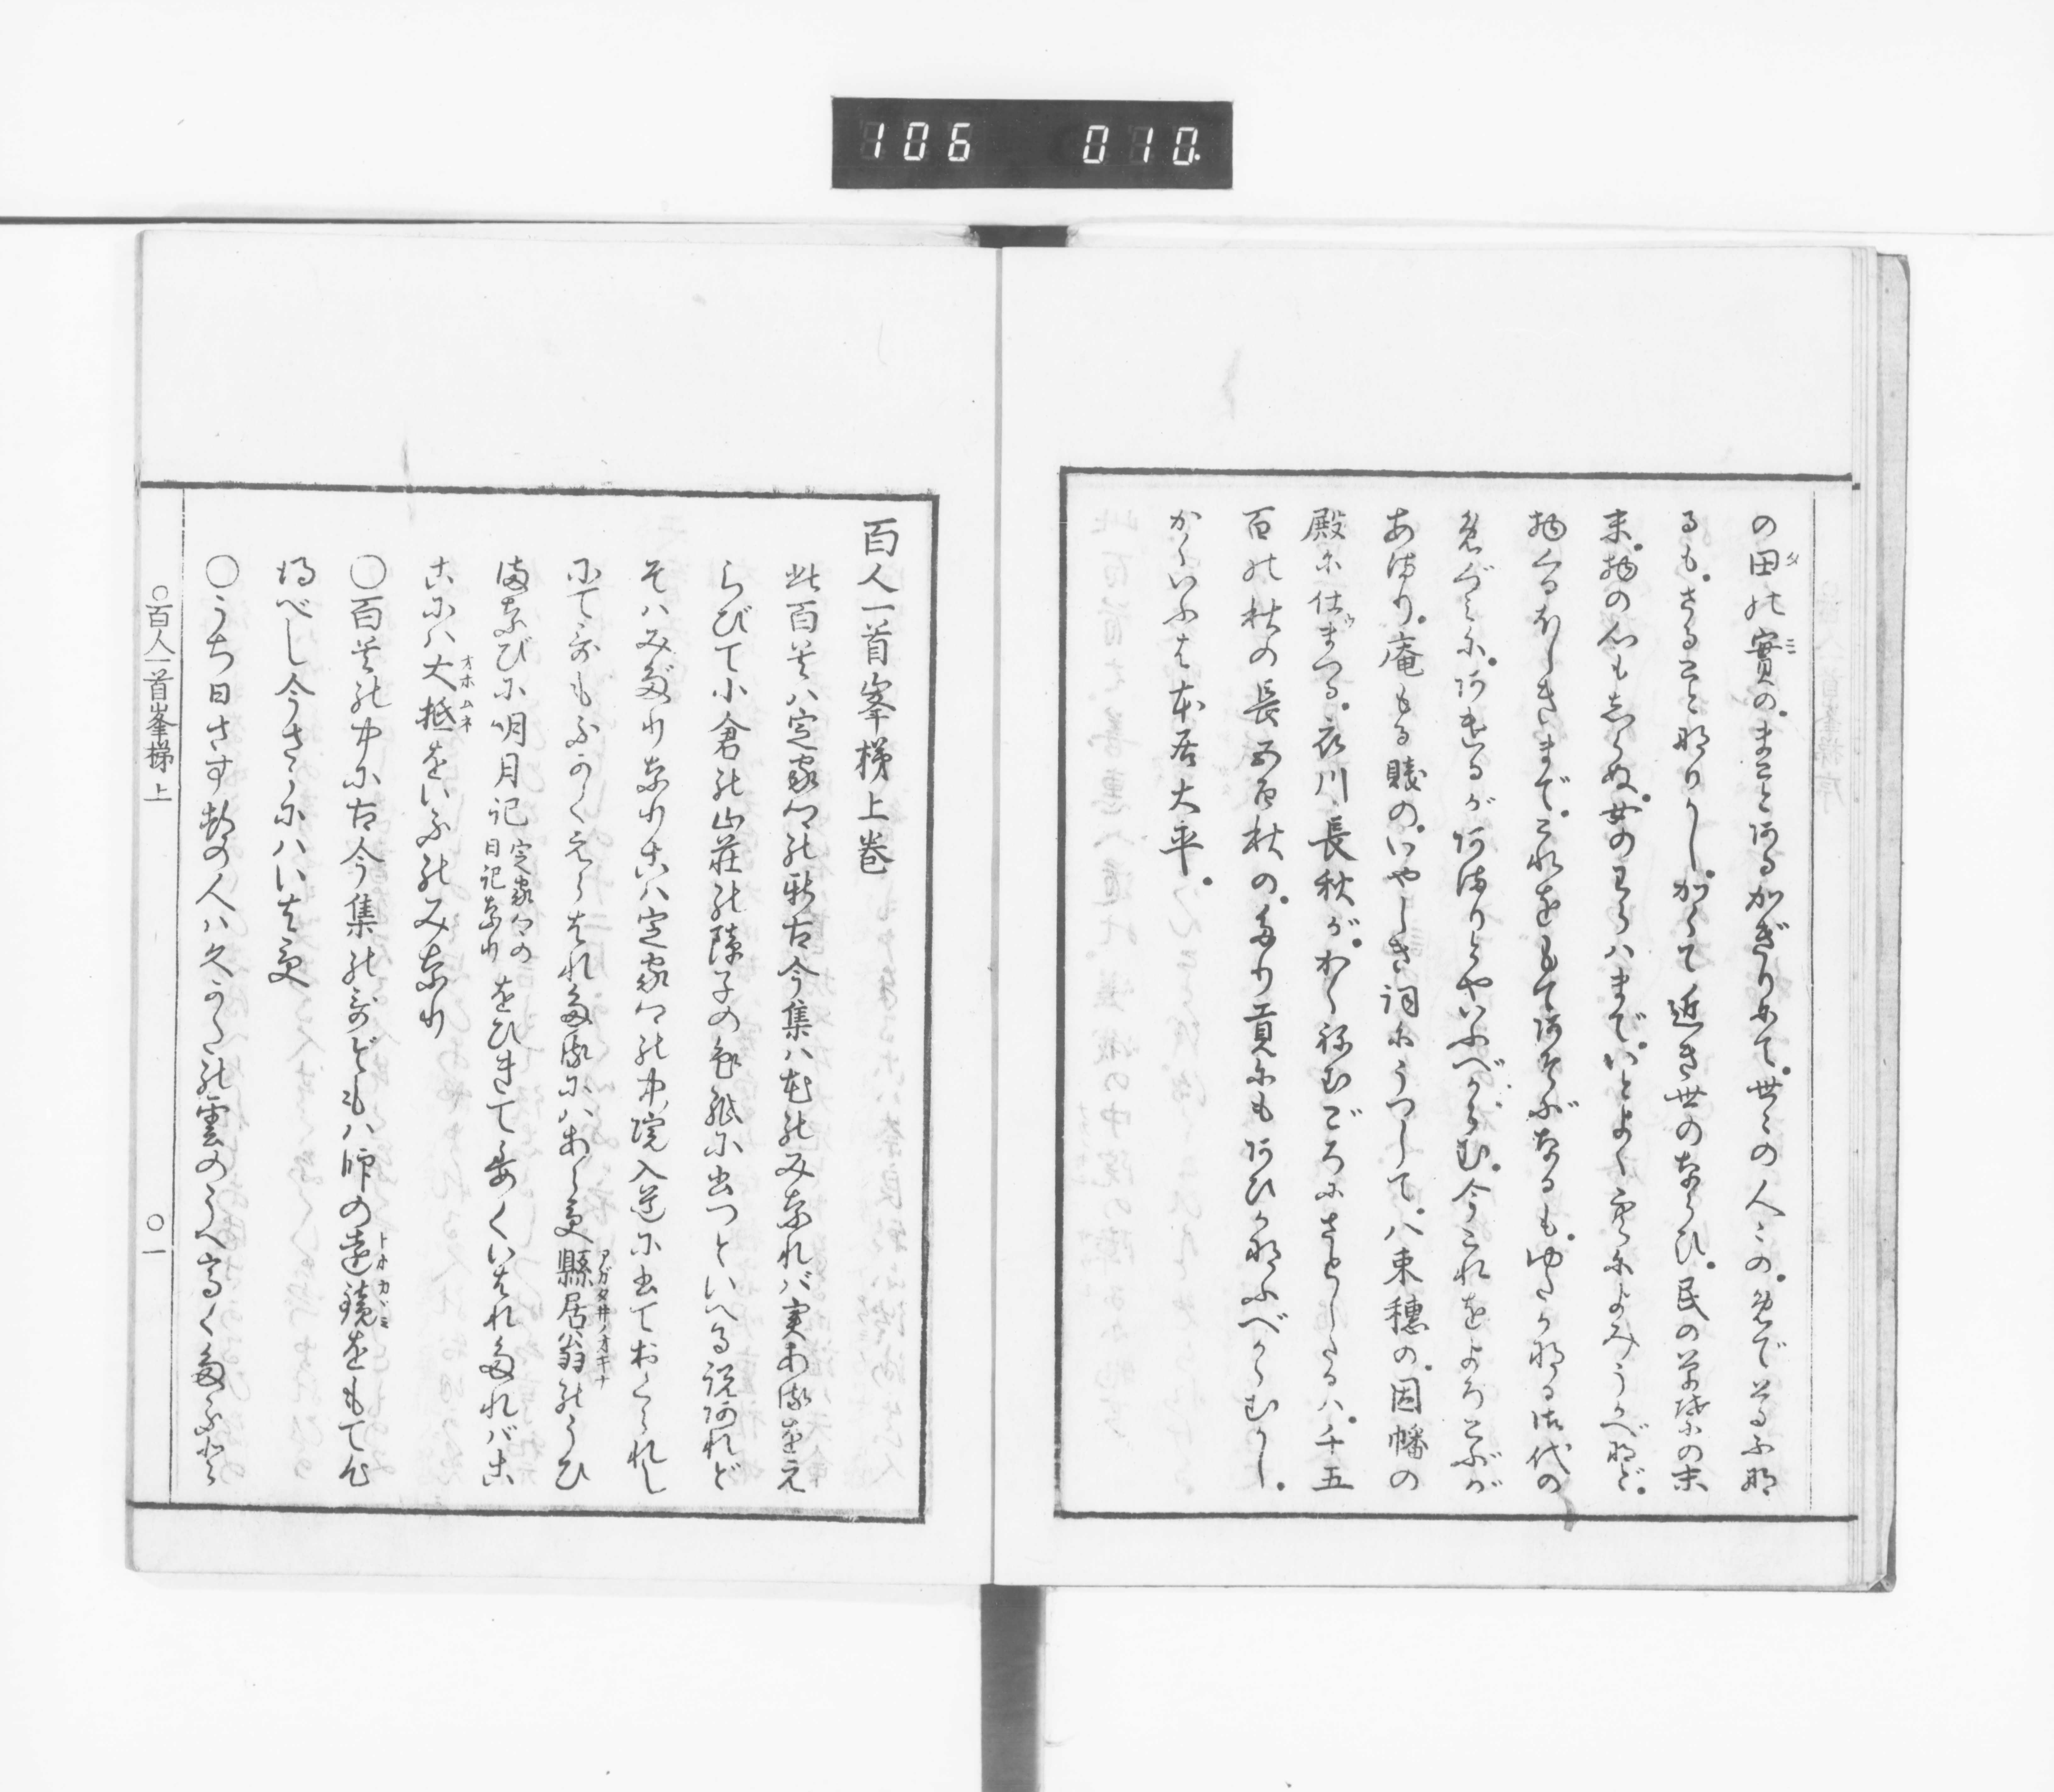 106 010
の田の實の。まこと阿るかぎりにて。世〻の人〻の。免でくるふ那
るも。さること那りかし。かくて近き世のならひ。民の草葉の末
末。物の心もしらぬ。女のわらはまで。いとよく空によみうかべ那ど。
物くるほしきまで。これをもて阿そぶなるも。ゆたか那る御代の
免ぐみに。阿まるが阿まりとやいふべからむ。今これをよろこぶが
あまり。庵もる賤の。いやしき詞にうつして。八束穗の。因幡の
殿に仕まつる。衣川長秋が。おくねむごろにさとしたるは。千五
百の秋の長五百秋の。たり貢にも阿ひか那ふべからむかし。
かくいふは本居大平。
百人一首峯梯上巻
此百首ハ定家卿の新古今集ハ花のみなれバ実あるをえ
らびて小倉の山荘の障子の色紙に出つといへる説阿れど
そハみだりなりこハ定家卿の中院入道に出ておくられし
にて歌もふかくえらはれたるにハあらず縣居翁のうひ
まなびに明月記定家卿の日記なりをひきて委くいはれたれバこ
こにハ大抵をいふのみなり
〇百首の中に古今集の歌どもハ師の遠鏡をもて心
得べし今さらにハいはず
〇うち日さす都の人ハ久かたの雲のうへ高く
〇百人一首峯梯上 〇一